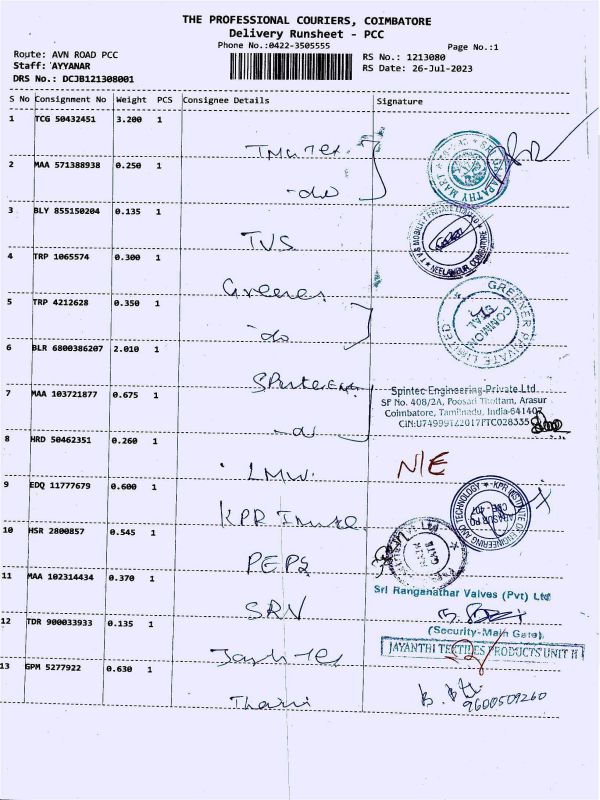 THE PROFESSIONAL COURIERS, COIMBATORE
Delivery Runsheet - PCC
Phone No.:0422-3505555
Page No.:1
Route: AVN ROAD PCC
Staff: AYYANAR
DRS No.: DCJB121308001
RS No.: 1213080
RS Date: 26-Jul-2023
S No Consignment No Weight PCS Consignee Details Signature
1 TCG 50432451 3.200 1
2 MAA 571388938 0.250 1 -do
3 BLY 855150204 0.135 1 TVS
TVS MOBILITY PRIVATE LIMITED
NEELAMBUR, COIMBATORE
4 TRP 1065574 0.300 1 Greener
GREENER PRIVATE LIMITED
COMMON SEAL
5 TRP 4212628 0.350 1 -do
6 BLR 6800386207 2.010 1
Spintec Engineering Private Ltd
SF No. 408/2A, Poosari Thottam, Arasur
Coimbatore, Tamilnadu, India-641407
7 MAA 103721877 0.675 1 -do
8 HRD 50462351 0.260 1 LMW. N/E
9 EDQ 11777679 0.600 1 KPR
KPR INSTITUTE OF ENGINEERING AND TECHNOLOGY
10 HSR 2800857 0.545 1 PEPS
11 MAA 102314434 0.370 1 SRV
Sri Ranganathar Valves (Pvt) Ltd
(Security-Main Gate)
12 TDR 900033933 0.135 1
JAYANTHI TECTILES PRODUCTS UNIT II
13 GPM 5277922 0.630 1
9600509260